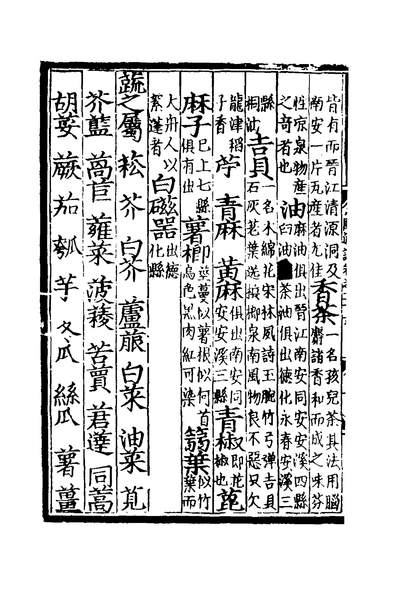 皆有而晉江清源洞及
南安一片瓦産者尤佳
香茶
一名孩兒茶其法用腦
麝諸香和而成之味芬
性凉泉物産
之奇者也
油
麻油俱出晉江南安同安安溪四縣
臼油 茶油俱出德化永春安溪三
縣
桐油
吉貝
一名木綿花宋林夙詩玉腕竹弓彈吉貝
石灰荖葉送檳榔泉南風物良不惡只欠
龍津稱
子香
苧 青麻 黃麻
俱出南安同
安安溪三縣
青椒
即花
椒也
蓖
麻子
已上七縣
俱有出
薯榔
即莖蔓似薯根似何首
烏色黑肉紅可染
箬葉
似竹
葉而
大舟人以
絮蓬者
白磁器
出德
化縣
蔬之屬 菘 芥 白芥 蘆菔 白菜 油菜 莧
芥藍 萵苣 蕹菜 菠薐 苦蕒 莙薘 同蒿
胡荽 蕨 茄 瓠 芋 冬瓜 絲瓜 薯 薑